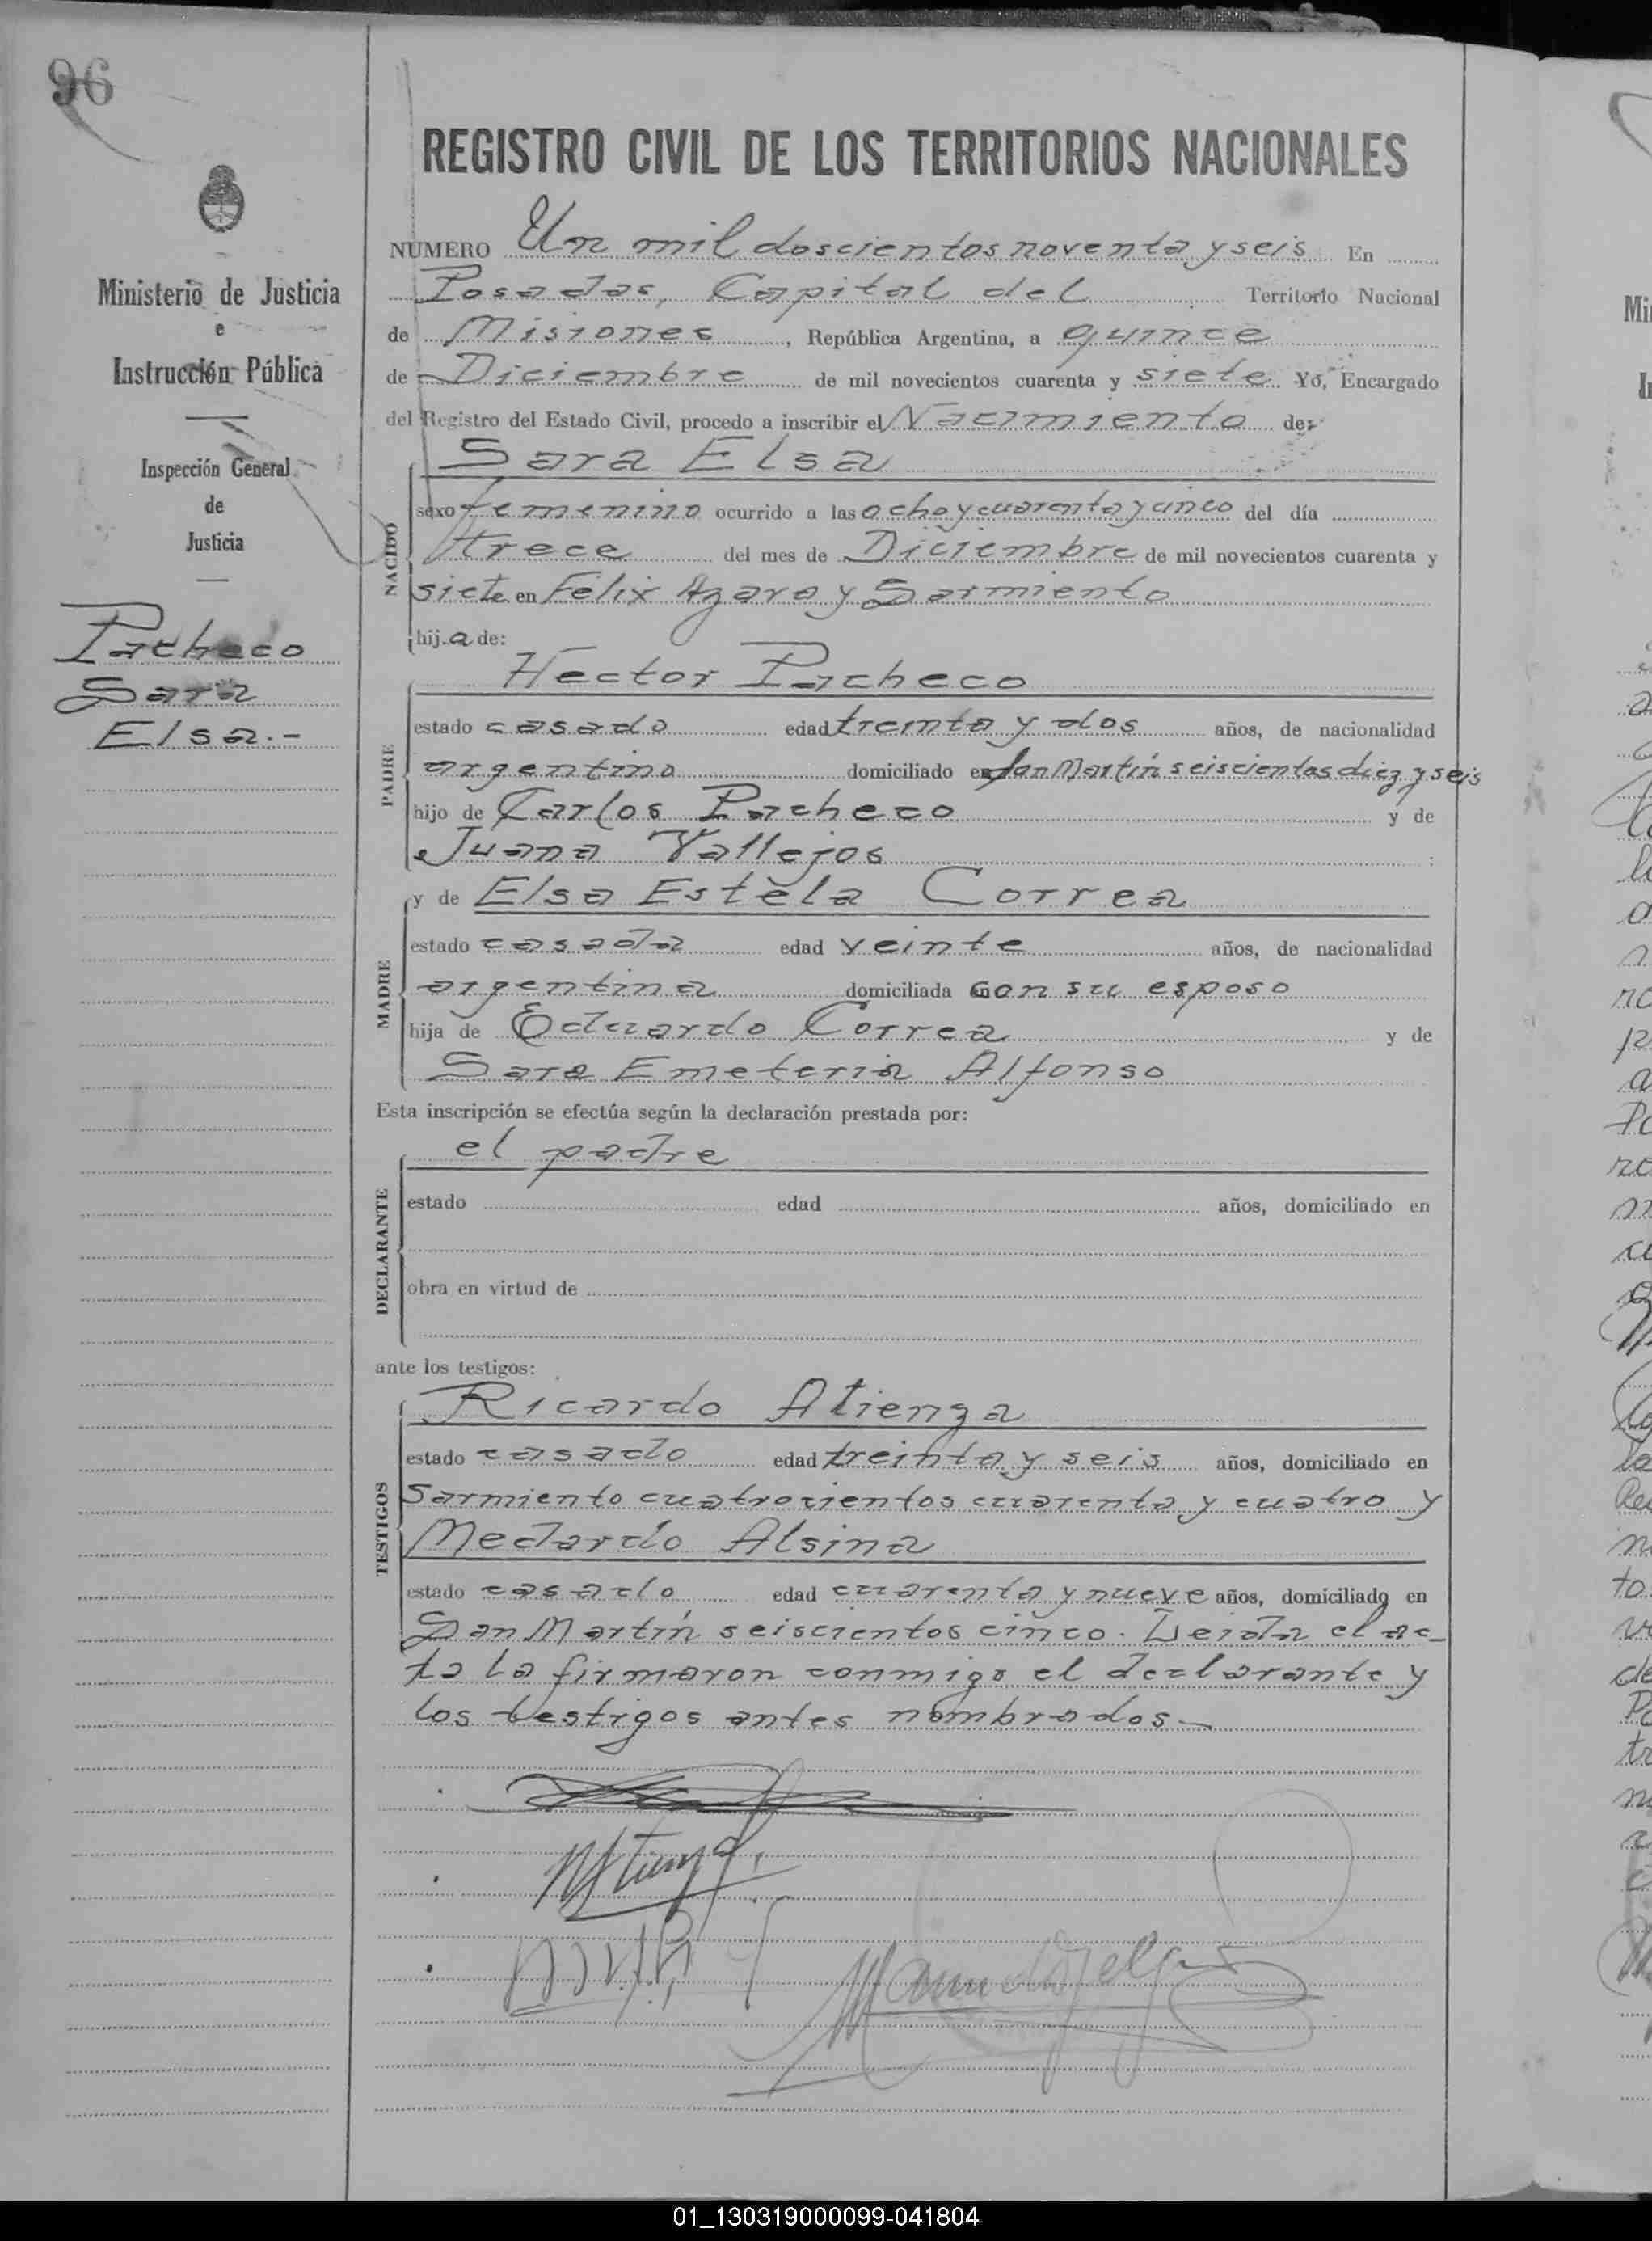 96
REGISTRO CIVIL DE LOS TERRITORIOS NACIONALES
Ministerio de Justicia
e
Instrucción Pública
Inspección General
de
Justicia
Pacheco
Sara
Elsa.-
NUMERO Un mil doscientos noventa y seis En
Posadas, Capital del Territorio Nacional
de Misiones, República Argentina, a quince
de Diciembre de mil novecientos cuarenta y siete Yo, Encargado
del Registro del Estado Civil, procedo a inscribir el Nacimiento de:
Sara Elsa
NACIDO
sexo femenino ocurrido a las ocho y cuarenta y cinco del día
trece del mes de Diciembre de mil novecientos cuarenta y
siete en Felix Azara y Sarmiento
hija de:
Hector Pacheco
PADRE
estado casado edad treinta y dos años, de nacionalidad
argentino domiciliado en San Martín seiscientos diez y seis
hijo de Carlos Pacheco y de
Juana Vallejos :
y de Elsa Estela Correa
MADRE
estado casada edad veinte años, de nacionalidad
argentina domiciliada con su esposo
hija de Eduardo Correa y de
Sara Emeteria Alfonso
Esta inscripción se efectúa según la declaración prestada por:
el padre
DECLARANTE
estado edad años, domiciliado en
obra en virtud de
ante los testigos:
Ricardo Atienza
TESTIGOS
estado casado edad treinta y seis años, domiciliado en
Sarmiento cuatrocientos cuarenta y cuatro y
Medardo Alsina
estado casado edad cuarenta y nueve años, domiciliado en
San Martín seiscientos cinco. Leida el ac-
ta la firmaron conmigo el declarante y
los testigos antes nombrados-
01_130319000099-041804